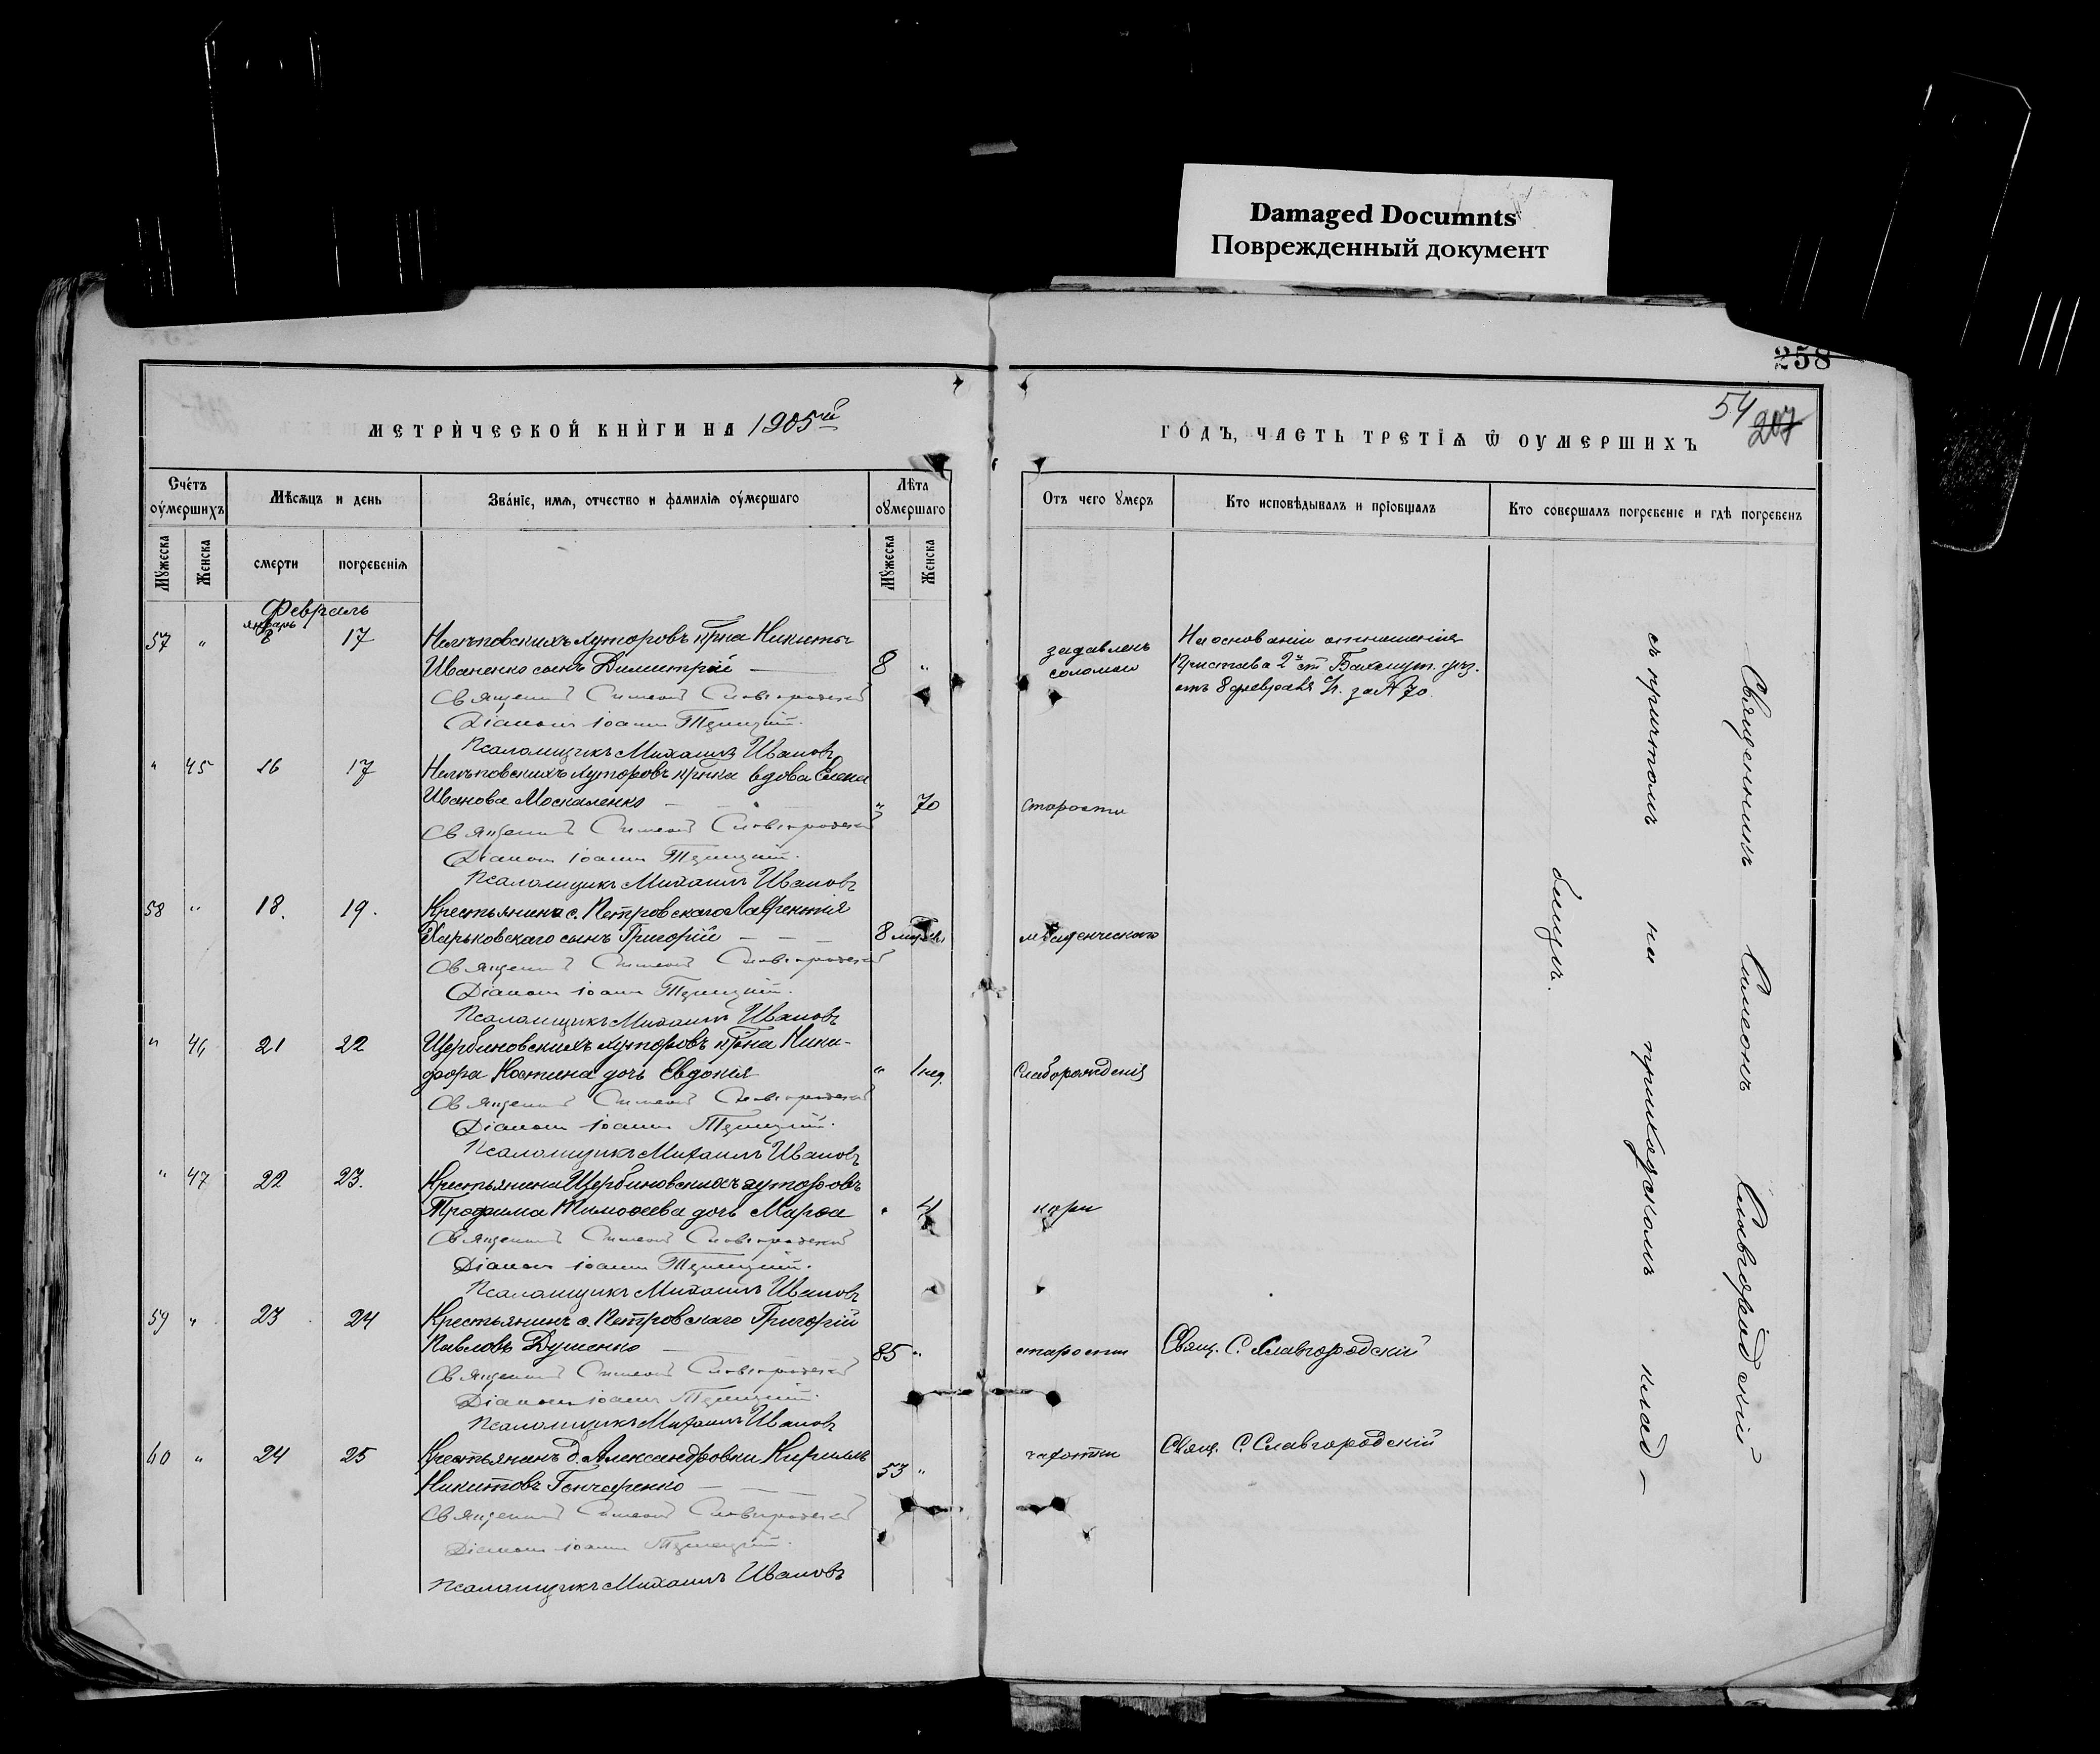 Damaged Documnts
Поврежденный документ
258
54
207
МЕТРИЧЕСКОЙ КНИГИ НА 1905й
ГОДЪ, ЧАСТЬ ТРЕТІЯ Ѿ ОУМЕРШИХЪ
Счетъ оумершихъ
Мѣсяцъ и день
Званіе, имя, отчество и фамилія оумершаго
Лѣта оумершаго
Отъ чего умеръ
Кто исповѣдывалъ и пріобщалъ
Кто совершалъ погребеніе и гдѣ погребенъ
Мужеска
Женска
смерти
погребенія
Мужеска
Женска
Февраль
январь
57 " 17 хуторовъ кр͞на Никиты
Иваненко сынъ Димитрій — 8 "
задавленъ соломою
На основаніи отношенія
Пристава 2 ст Бахмут. уѣз.
отъ 8 февраля с/г. за № 70.
Священникъ Симеонъ Славгородскій
Діаконъ Іоаннъ
Псаломщикъ Михаилъ Ивановъ
" 45 16 17 хуторовъ кр͞нка вдова Елена
Иванова Москаленко — " 70 старости
Священникъ Симеонъ Славгородскій
Діаконъ Іоаннъ
Псаломщикъ Михаилъ Ивановъ
58 " 18. 19. Крестьянина с. Петровскаго Лаврентія
Харьковскаго сынъ Григорій — — — 8 младенческаго
Священникъ Симеонъ Славгородскій
Діаконъ Іоаннъ
Псаломщикъ Михаилъ Ивановъ
" 46 21 22 Щербиновскихъ хуторовъ кр͞на Ники-
фора Костина дочь Евдокія " 1 нед. Слаборожденія
Священникъ Симеонъ Славгородскій
Діаконъ Іоаннъ
Псаломщикъ Михаилъ Ивановъ
" 47 22 23. Крестьянина Щербиновскихъ хуторовъ
Трофима Тимоѳеева дочь Марѳа " 4 кори
Священникъ Симеонъ Славгородскій
Діаконъ Іоаннъ
Псаломщикъ Михаилъ Ивановъ
59 " 23 24 Крестьянинъ с. Петровскаго Григорій
Павловъ Душенко — 85 " старости Свящ. С. Славгородскій
Священникъ Симеонъ Славгородскій
Діаконъ Іоаннъ
Псаломщикъ Михаилъ Ивановъ
60 " 24 25 Крестьянинъ д. Александровки Кириллъ
Никитовъ Гончаренко — 53 " чахотки Свящ. С. Славгородскій
Священникъ Симеонъ Славгородскій
Діаконъ Іоаннъ
Псаломщикъ Михаилъ Ивановъ
Священникъ Симеонъ Славгородскій
съ причтомъ на приходскомъ клад-
бищѣ.